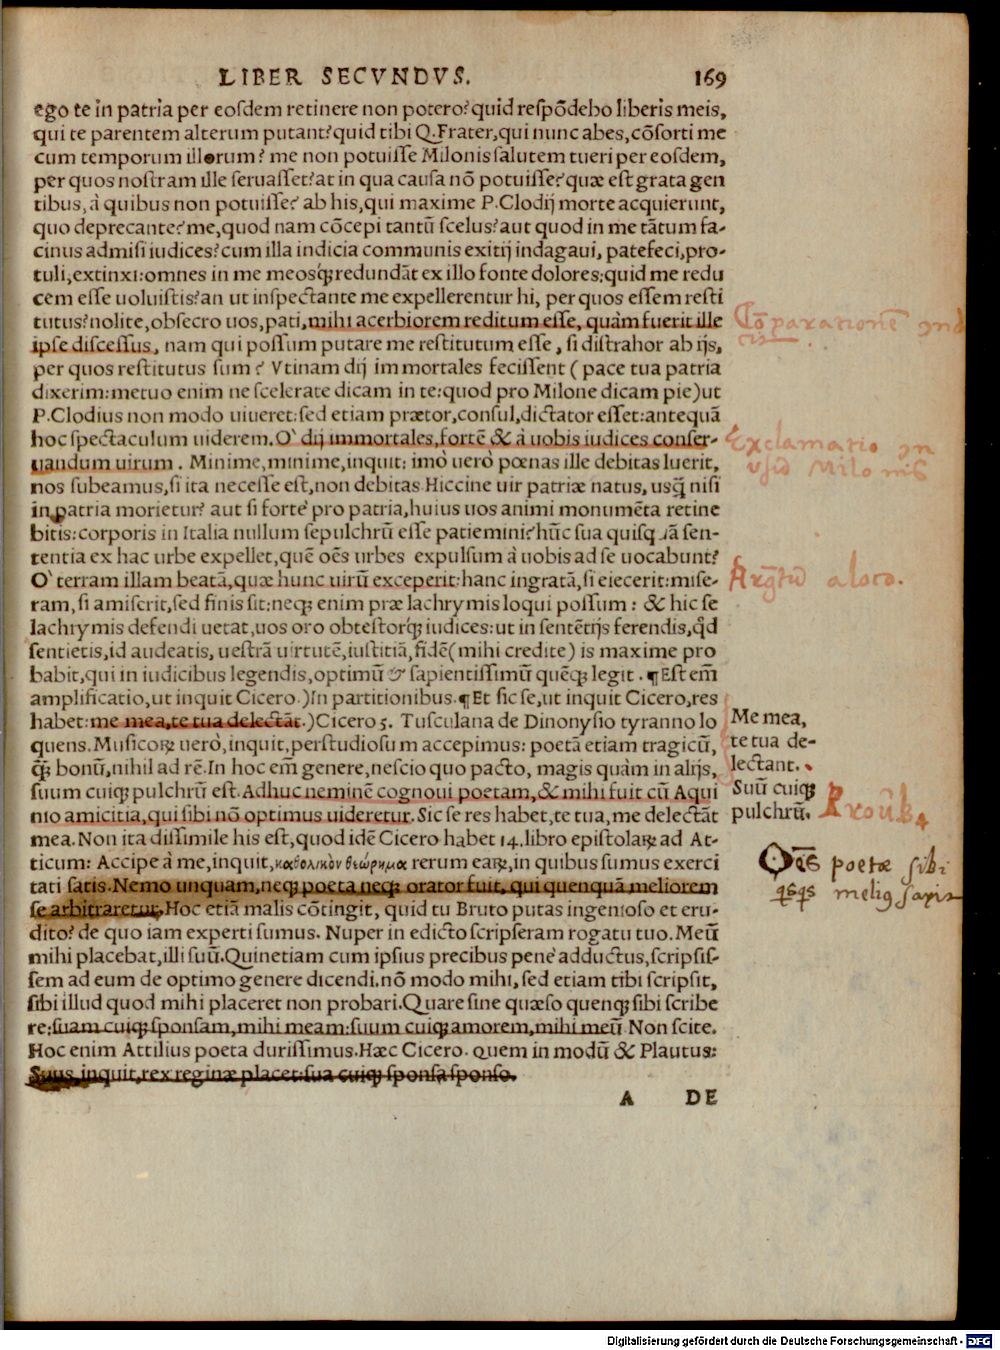 LIBER SECVNDVS. 169
ego te in patria per eosdem retinere non potero? quid respōdebo liberis meis,
qui te parentem alterum putant? quid tibi Q. Frater, qui nunc abes, cōsorti me
cum temporum illorum? me non potuisse Milonis salutem tueri per eosdem,
per quos nostram ille seruasset? at in qua causa nō potuisse? quæ est grata gen
tibus, à quibus non potuisse? ab his, qui maxime P. Clodij morte acquierunt,
quo deprecante? me, quod nam cōcepi tantū scelus? aut quod in me tātum fa-
cinus admisi iudices? cum illa indicia communis exitij indagaui, patefeci, pro-
tuli, extinxi: omnes in me meosq́; redundāt ex illo fonte dolores: quid me redu
cem esse uoluistis? an ut inspectante me expellerentur hi, per quos essem resti
tutus? nolite, obsecro uos, pati, mihi acerbiorem reditum esse, quàm fuerit ille
ipse discessus, nam qui possum putare me restitutum esse, si distrahor ab ijs,
per quos restitutus sum? Vtinam dij immortales fecissent (pace tua patria
dixerim: metuo enim ne scelerate dicam in te: quod pro Milone dicam pie) ut
P. Clodius non modo uiueret: sed etiam prætor, consul, dictator esset: antequā
hoc spectaculum uiderem. O' dij immortales, fortē & à uobis iudices conser-
uandum uirum. Minime, minime, inquit: imò uerò pœnas ille debitas luerit,
nos subeamus, si ita necesse est, non debitas Hiccine uir patriæ natus, usq̃ nisi
in patria morietur? aut si forte pro patria, huius uos animi monumēta retine
bitis: corporis in Italia nullum sepulchrū esse patiemini? hūc sua quisq́ā sen-
tentia ex hac urbe expellet, quē oēs urbes expulsum à uobis ad se uocabunt?
O' terram illam beatā, quæ hunc uirū exceperit: hanc ingratā, si eiecerit: mise-
ram, si amiserit, sed finis sit: neq; enim præ lachrymis loqui possum: & hic se
lachrymis defendi uetat, uos oro obtestorq́; iudices: ut in sentētijs ferendis, qd̄
sentietis, id audeatis, uestrā uirtutē, iustitiā, fidē (mihi credite) is maxime pro
babit, qui in iudicibus legendis, optimū & sapientissimū quēq; legit. ¶ Est em̄
amplificatio, ut inquit Cicero.) In partitionibus. ¶ Et sic se, ut inquit Cicero, res
habet: me mea, te tua delectāt.) Cicero 5. Tusculana de Dinonysio tyranno lo
quens. Musicoꝝ uerò, inquit, perstudiosum accepimus: poetā etiam tragicū,
q̃; bonū, nihil ad rē. In hoc em̄ genere, nescio quo pacto, magis quàm in alijs,
suum cuiq; pulchrū est. Adhuc neminē cognoui poetam, & mihi fuit cū Aqui
nio amicitia, qui sibi nō optimus uideretur. Sic se res habet, te tua, me delectāt
mea. Non ita dissimile his est, quod idē Cicero habet 14. libro epistolaꝝ ad At-
ticum: Accipe à me, inquit, καθολικὸν θεώρημα rerum eaꝝ, in quibus sumus exerci
tati satis. Nemo unquam, neq; poeta neq; orator fuit, qui quenquā meliorem
se arbitraretur. Hoc etiā malis cōtingit, quid tu Bruto putas ingenioso et eru-
dito? de quo iam experti sumus. Nuper in edicto scripseram rogatu tuo. Meū
mihi placebat, illi suū. Quinetiam cum ipsius precibus penè adductus, scripsis-
sem ad eum de optimo genere dicendi. nō modo mihi, sed etiam tibi scripsit,
sibi illud quod mihi placeret non probari. Quare sine quæso quenq; sibi scribe
re: suam cuiq; sponsam, mihi meam: suum cuiq; amorem, mihi meū Non scite.
Hoc enim Attilius poeta durissimus. Hæc Cicero. quem in modū & Plautus:
Suus, inquit, rex reginæ placet: sua cuiq; sponsa sponso.
A DE
Cōparationē
Exclamatio in
Milonis
Argtū a loco.
Me mea,
te tua de-
lectant.
Suū cuiq;
pulchrū.
Prouīb
Oēs poetæ sibi
melius